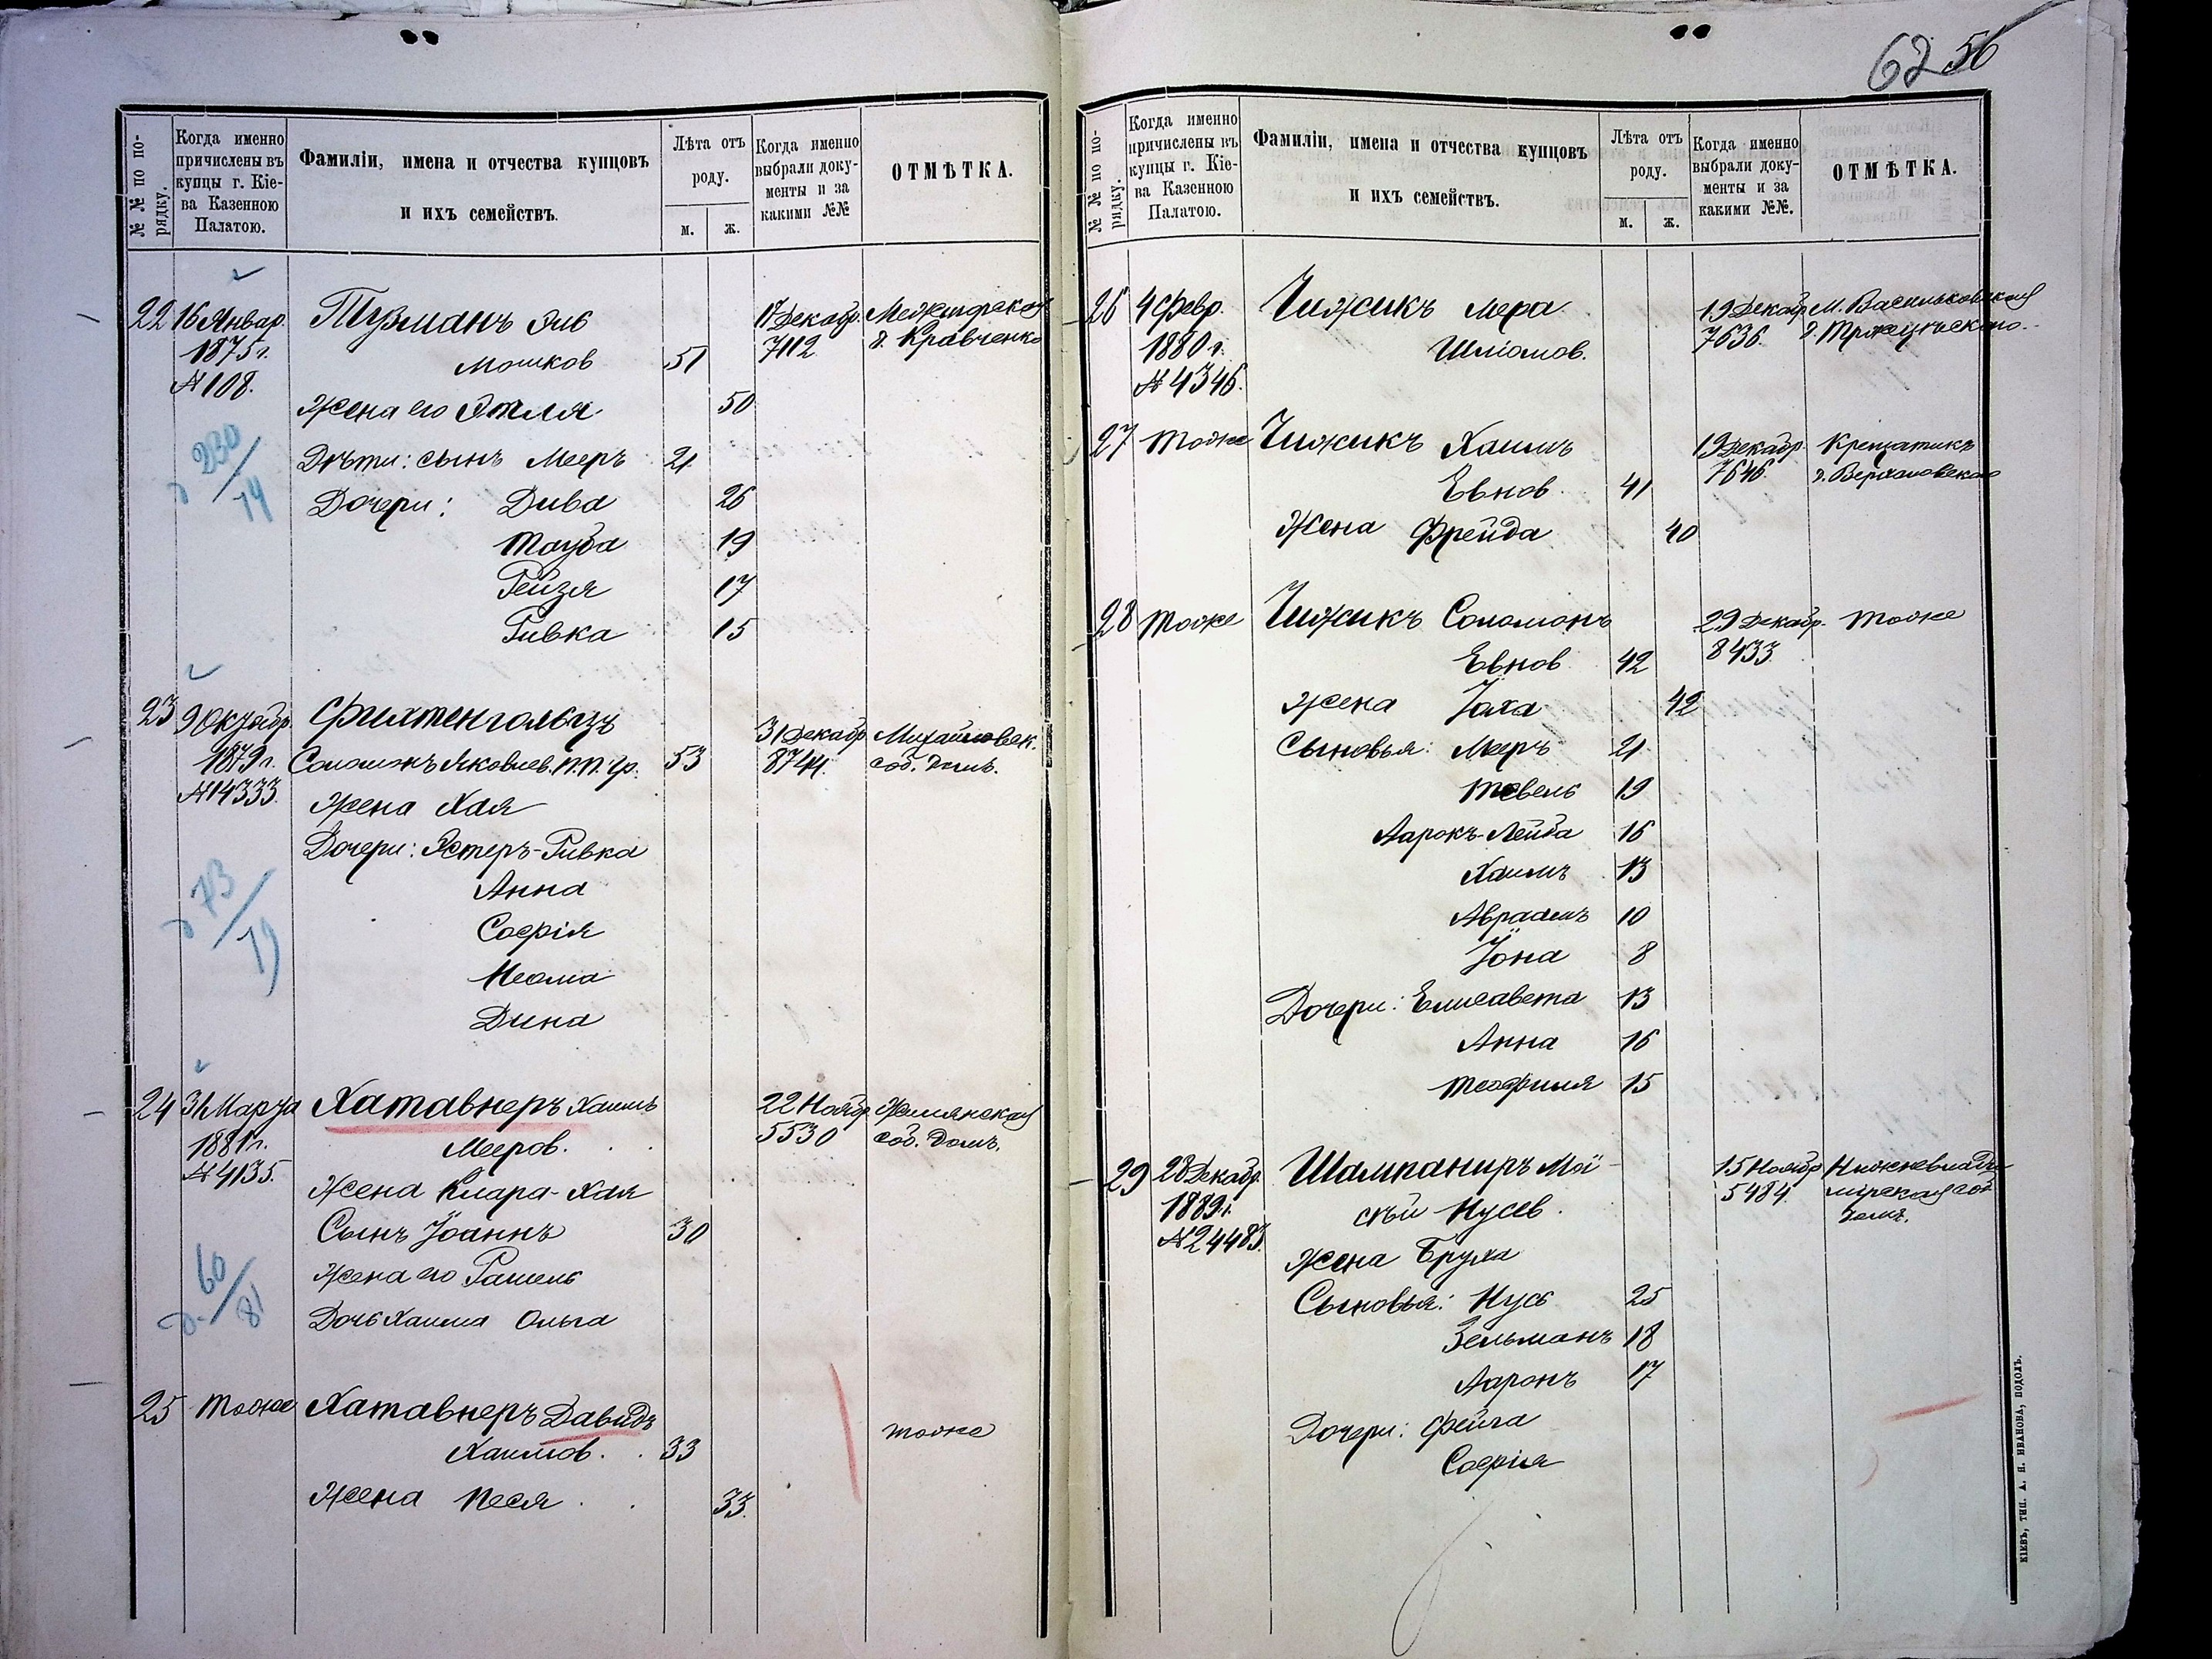 62 56
№ № по по-
рядку.
Когда именно
причислены въ
купцы г. Кіе-
ва Казенною
Палатою.
Фамиліи, имена и отчества купцовъ
и ихъ семействъ.
Лѣта отъ
роду.
м. ж.
Когда именно
выбрали доку-
менты и за
какими №№
ОТМѢТКА.
22 16 Январ. Тузманъ Эль 17 Декабр.
1875 г. Мошков 51 7112 д. Кравченко
№ 108.
Жена его Этля 50
230/74
Дѣти: сынъ Мееръ 21
Дочери: Дива 26
Тауба 19
Рейзя 17
Ривка 15
23 9 Октябр Фихтенгольцъ 31 Декабр Михайловск.
1879 г. Соломонъ Яковлев. п.п. гр. 53 8744. соб. домъ.
№ 14333. Жена Хая
Дочери: Эстеръ-Ривка
73/79
Анна
Софія
Неома
Дина
24 31 Марта Хатавнеръ Хаимъ 22 Ноябр. Жилянская
1881 г. Мееров. 5530 соб. домъ.
№ 4135. Жена Клара-Хая
Сынъ Іоаннъ 30
60/81
Жена его Рашель
Дочь Хаима Ольга
25 тоже Хатавнеръ Давидъ тоже
Хаимов. 33
Жена Песя 33.
№ № по по-
рядку.
Когда именно
причислены въ
купцы г. Кіе-
ва Казенною
Палатою.
Фамиліи, имена и отчества купцовъ
и ихъ семействъ.
Лѣта отъ
роду.
м. ж.
Когда именно
выбрали доку-
менты и за
какими №№.
ОТМѢТКА.
26 4 Февр. Чижикъ Мера 19 Декабр М. Васильковская
1880 г. Шліомов. 7636.
№ 4346.
27 тоже Чижикъ Хаимъ 19 Декабр. Крещатикъ
Евнов. 41 7646.
Жена Фрейда 40
28 тоже Чижикъ Соломонъ 29 Декабр. тоже
Евнов. 42 8433.
Жена Хаха 42
Сыновья: Мееръ 21
Тевель 19
Ааронъ-Лейба 16
Хаимъ 13
Авраамъ 10
Іона 8
Дочери: Елисавета 13
Анна 16
Теофиля 15
29 28 Декабр. Шампаниръ Мои- 15 Ноябр Нижневлади-
1889 г. сѣй Нусев. 5484. мірская соб
№ 24483. домъ.
Жена Бруха
Сыновья: Нусь 25
Зельманъ 18
Ааронъ 17
Дочери: Фейга
Софія
КІЕВЪ, ТИП. А. Н. ИВАНОВА, ПОДОЛЪ.